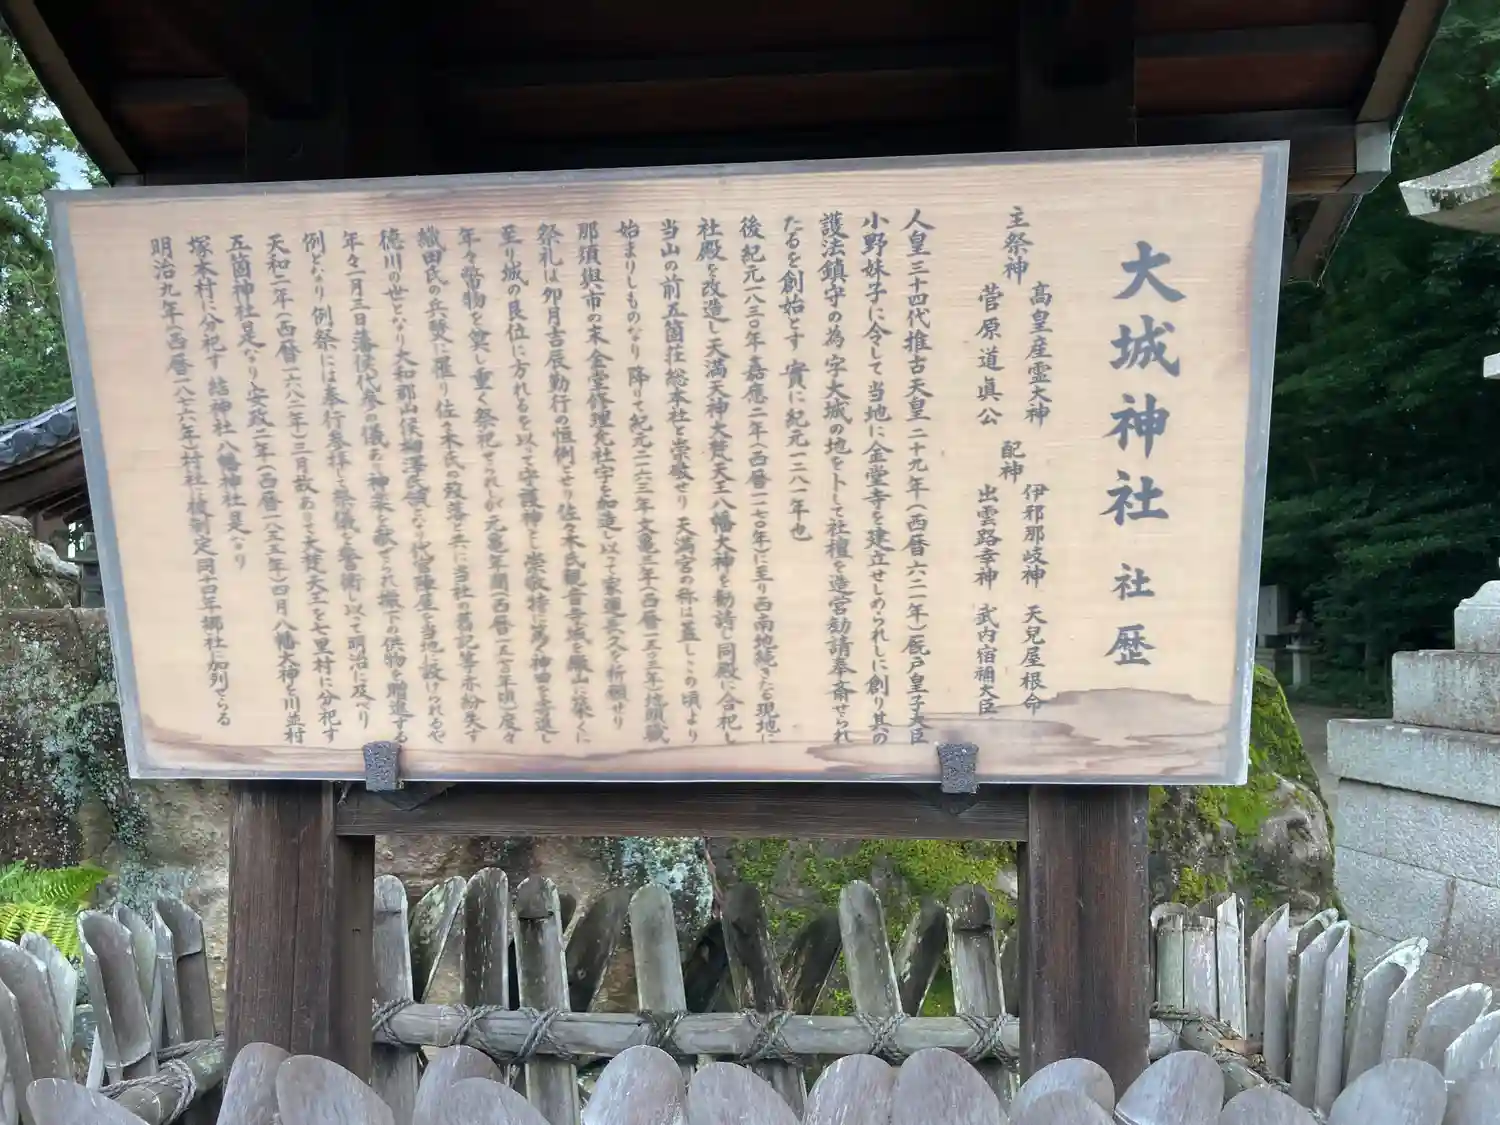 大城神社 社歴
主祭神
高皇産霊大神
菅原道眞公
配神
伊邪那岐神 天兒屋根命
出雲路幸神 武内宿禰大臣
人皇三十四代推古天皇二十九年(西暦六二一年)厩戸皇子大臣
小野妹子に令して当地に金堂寺を建立せしめられしに創り其の
護法鎮守の為 字大城の地をトして社壇を造宮勧請奉斎せられ
たるを創始とす 實に紀元一二八一年也
後紀元一八三〇年嘉應二年(西暦一一七〇年)に至り西南地続きたる現地に
社殿を改造し天満天神大梵天王八幡大神を勧請し同殿に合祀し
当山の前五箇荘総本社と崇敬せり 天満宮の称は蓋しこの頃より
始まりしものなり 降りて紀元二一六三年文亀三年(西暦一五〇三年)地頭職
那須與市の末 金堂修理亮社宇を加造し以て家運長久を祈願せり
祭礼は卯月吉辰勤行の恒例とせり佐々木氏観音寺城を繖山に築くに
至り城の艮位に方れるを以て守護神と崇敬特に篤く神田を寄進し
年々幣物を奠し重く祭祀せられしが 元亀年間(西暦一五七〇年頃)度々
織田氏の兵燹に罹り佐々木氏の没落と共に当社の旧記等亦紛失す
徳川の世となり大和郡山侯柳澤氏領となり代官陣屋を当地に設けられるや
年々一月三日藩侯代参の儀あり神采を献ぜられ撤下の供物を贈進する
例となり 例祭には奉行参拝し祭儀を警衛し以て明治に及べり
天和二年(西暦一六八二年)三月故ありて大梵天王を七里村に分祀す
五箇神社是なり 安政二年(西暦一八五五年)四月八幡大神を川並村
塚本村に分祀す 結神社 八幡神社是なり
明治九年(西暦一八七六年)村社に被制定同十四年郷社に加列せらる